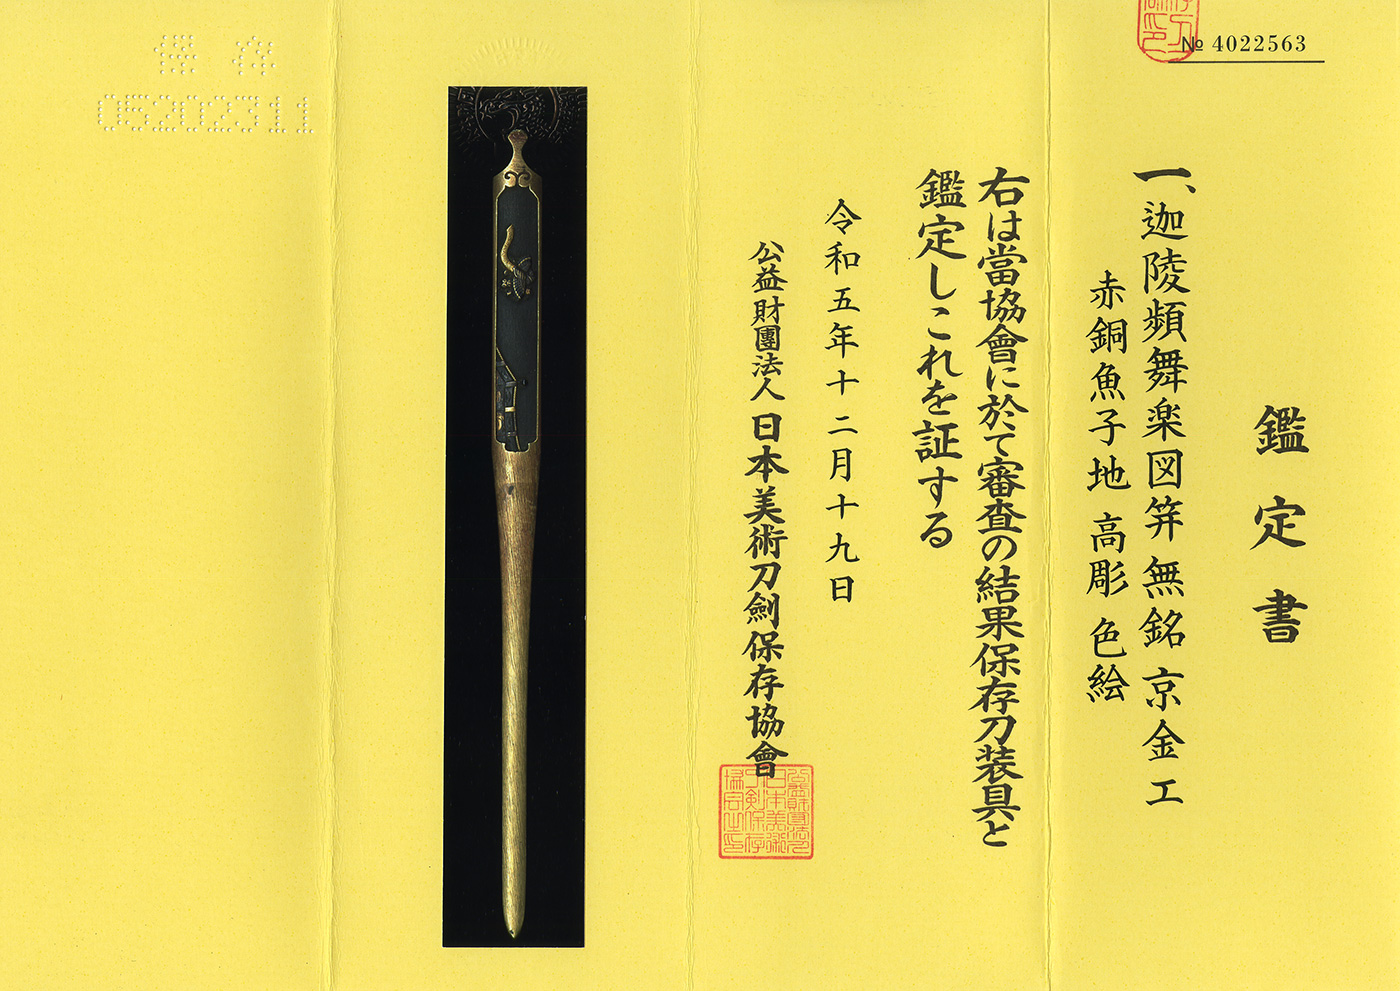 № 4022563
鑑定書
一、迦陵頻舞楽図笄 無銘 京金工
赤銅魚子地 高彫 色絵
右は當協會に於て審査の結果保存刀装具と
鑑定しこれを証する
令和五年十二月十九日
公益財團法人 日本美術刀劍保存協會
公益財團法人日本美術刀剣保存協会之印
保存
05202311